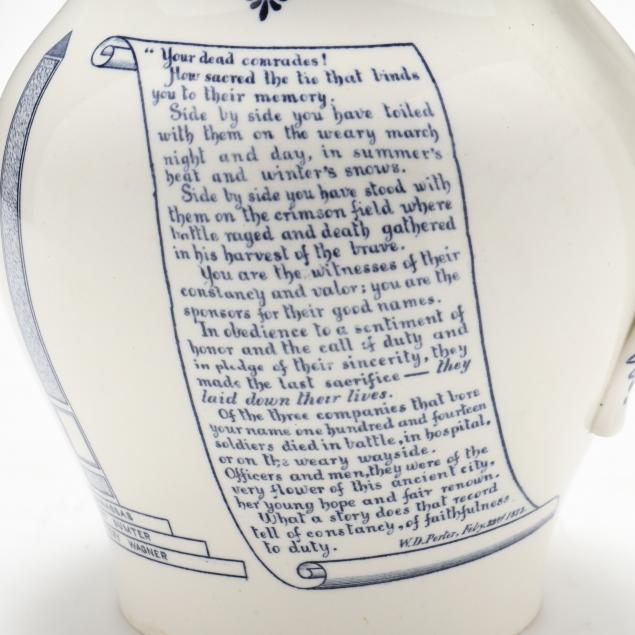 “Your dead comrades!
How sacred the tie that binds
you to their memory.
Side by side you have toiled
with them on the weary march
night and day, in summer's
heat and winter's snows.
Side by side you have stood with
them on the crimson field where
battle raged and death gathered
in his harvest of the brave.
You are the witnesses of their
constancy and valor; you are the
sponsors for their good names.
In obedience to a sentiment of
honor and the call of duty and
in pledge of their sincerity, they
made the last sacrifice — they
laid down their lives.
Of the three companies that bore
your name one hundred and fourteen
soldiers died in battle, in hospital,
or on the weary wayside.
Officers and men, they were of the
very flower of this ancient city,
her young hope and fair renown.
What a story does that record
tell of constancy, of faithfulness
to duty.
W.D. Porter, Feby. 22nd
SUMTER
WAGNER